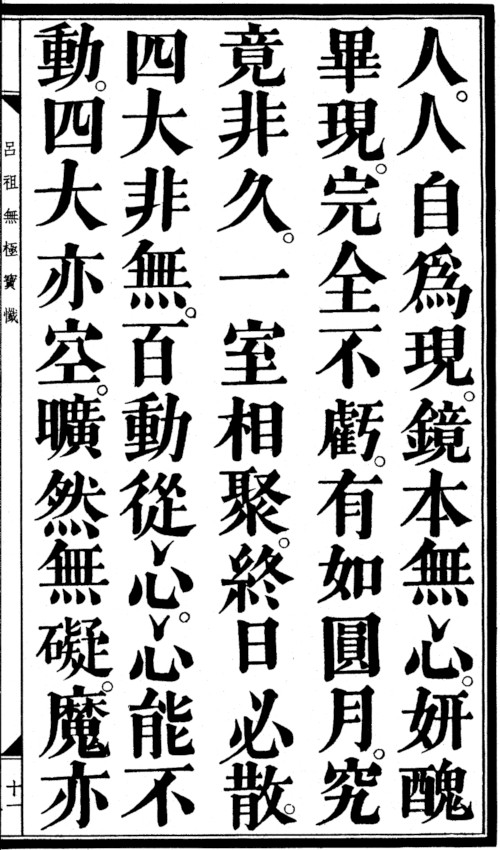 人。人自為現。鏡本無心。妍醜
畢現。完全不虧。有如圓月。究
竟非久。一室相聚。終日必散。
四大非無。百動從心。心能不
動。四大亦空。曠然無礙。魔亦
呂祖無極寶懺
十一